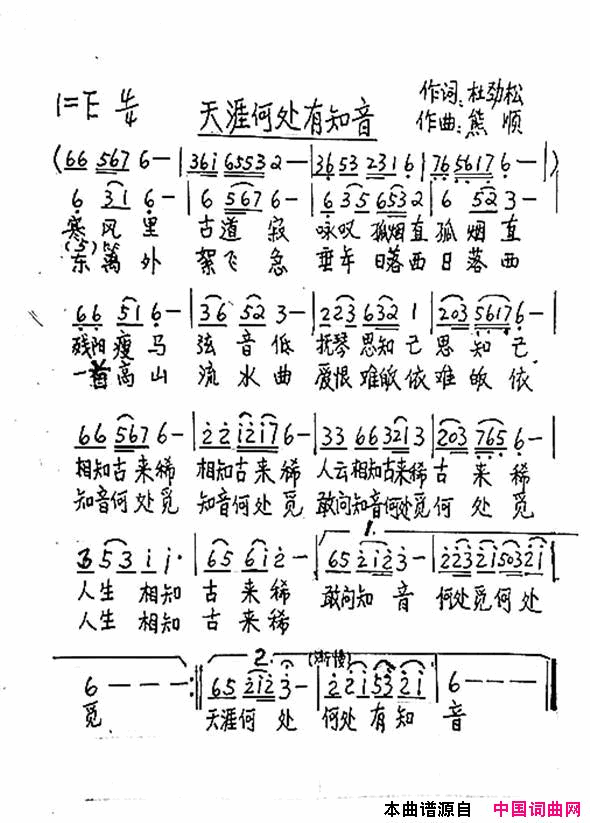 1=E 4/4 天涯何处有知音 作词:杜劲松
作曲:熊顺
(66 567 6- | 361 6553 2- | 3653 2316 | 765617 6- |)
6 31 6- | 6 567 6- | 6 35 6532 | 6 52 3- |
寒风里 古道寂 咏叹孤烟直孤烟直
东篱外 絮飞急 垂年日落西日落西
66 51 6- | 36 52 3- | 223 632 1 | 203 5617 6- |
残阳瘦马 弦音低 抚琴思知己思知己
一首高山 流水曲 爱恨难皈依难皈依
66 567 6- | 22 1217 6- | 33 66 321 3 | 203 765 6- |
相知古来稀 相知古来稀 人云相知古来稀古来稀
知音何处觅 知音何处觅 敢问知音何处觅何处觅
1.
3 53 i i· | 65 61 2- | 65 212 3- | 223 21 503 21 |
人生相知 古来稀 敢问知音 何处觅何处
人生相知 古来稀
2. (渐慢)
6--- :‖ 65 212 3- | 2 21 53 21 | 6--- ‖
觅 天涯何处 何处有知音
本曲谱源自 中国词曲网